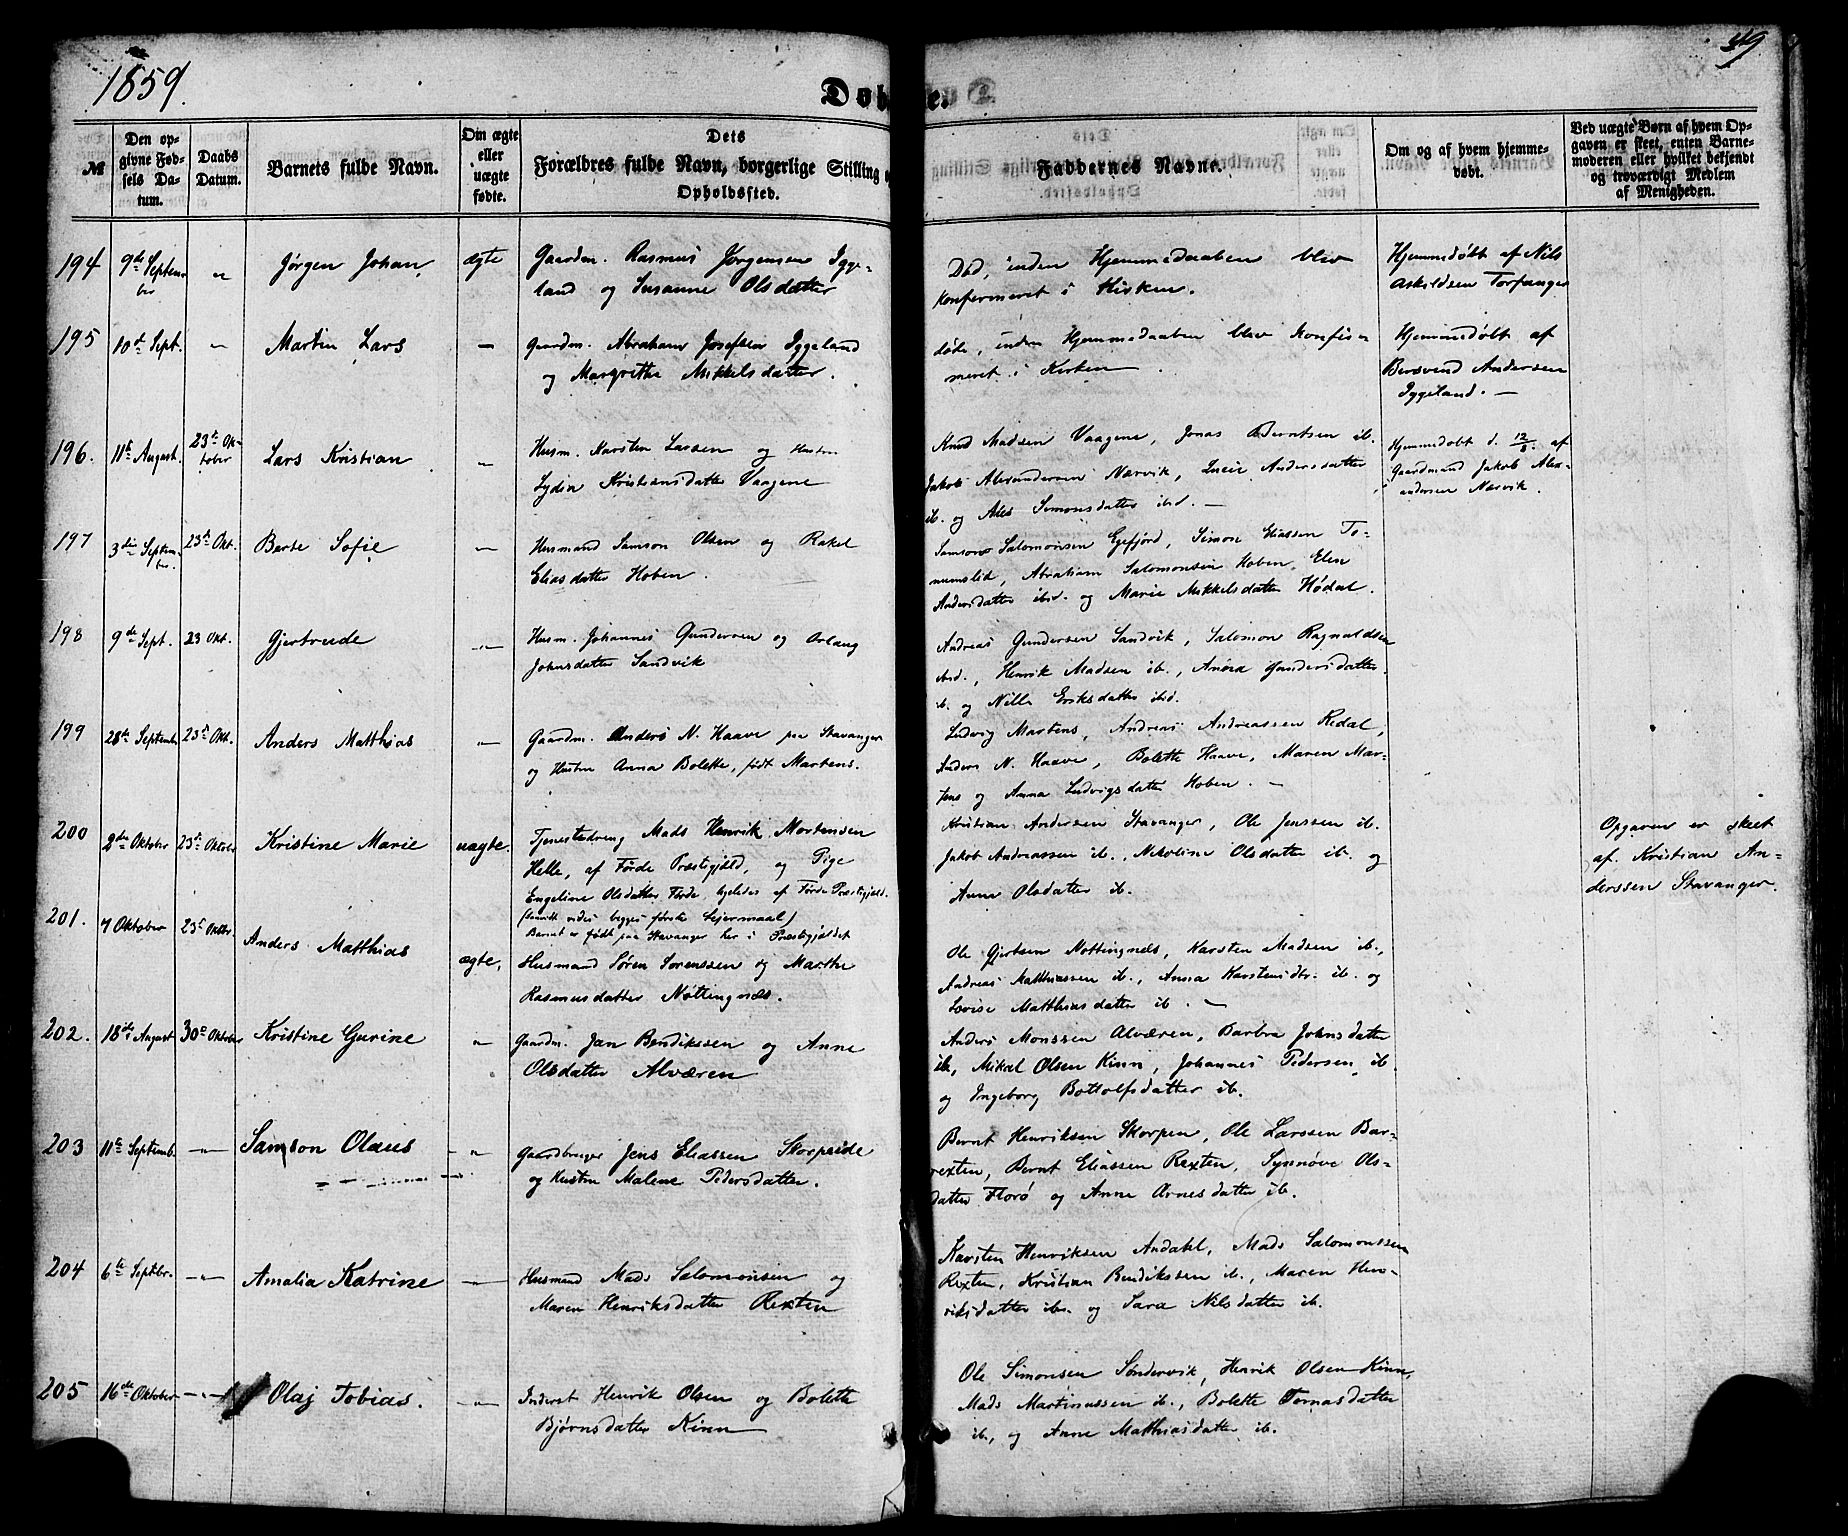 1859.
Døbte.
49
№
Den op-
givne Fød-
sels Da-
tum.
Daabs
Datum.
Barnets fulde Navn.
Om ægte
eller
uægte
fødte.
Dets
Forældres fulde Navn, borgerlige Stilling o
Opholdssted.
Faddernes Navne.
Om og af hvem hjemme-
døbt.
Ved uægte Børn af hvem Op-
gaven er skeet, enten Barne-
moderen eller hvilket bekjendt
og troværdigt Medlem
af Menigheden.
194
9de Septem-
ber
"
Jørgen Johan
ægte
Gaardm. Rasmus Jørgensen Igge-
land og Susanne Olsdatter
Død, inden Hjemmedaaben blev
konfermeret i Kirken.
Hjemmedøbt af Nils
Askildsen Torfanger
195
10de Sept.
"
Martin Lars
—
Gaardm. Abraham Josefsen Iggeland
og Margrethe Mikkelsdatter.
døde, inden Hjemmedaaben blev konfir-
meret i Kirken.
Hjemmedøbt af
Bersvend Andersen
Iggeland. —
196.
11te August.
23de Ok-
tober
Lars Kristian
"
Husm. Karsten Larsen og Hustru
Lydia Kristiansdatter Vaagene
Knud Madsen Vaagene, Jonas Berntsen ib.
Jakob Alexandersen Nærvik, Lucie Andersdatter
ib. og Ales Simonsdatter ibid. —
Hjemmedøbt d. 12/8 af
Gaardmand Jakob Alex-
andersen Nærvik.
197
3die Septem-
ber.
23de Okt.
Berte Sofie
—
Husmand Samson Olsen og Rakel
Eliasdatter Hoben.
Samson Salomonsen Egefjord, Simon Eliassen To-
numslid, Abraham Salomonsen Hoben, Elen
Andersdatter ibid. og Marie Mikkelsdatter Hødal.
198
9de Sept.
23 Okt.
Gjertrude
—"—
Husm. Johannes Gundersen og Orlaug
Johnsdatter Sandvik
Andreas Gundersen Sandvik, Salomon Ragnaldsen
ibid., Henrik Madsen ib., Anna Gundersdatter
ib. og Nille Eriksdatter ibid.
199
28de Septemb.
23de Okt.
Anders Matthias
—
Gaardm. Anders N. Haave paa Stavanger
og Hustru Anna Bolette, født Martens.
Ludvig Martens, Andreas Andreassen Redal,
Anders N. Haave, Bolette Haave, Maren Mar-
tens og Anna Ludvigsdatter Hoben. —
200
2den Oktober
23de Oktober
Kristine Marie
uægte.
Tjenestedreng Mads Henrik Mortensen
Helle, af Førde Præstegjeld, og Pige
Engeline Olsdatter Førde, ligeledes af Førde Præstegjeld.
(saavidt vides begges første Lejermaal)
Barnet er født paa Stavanger her i Præstegjeldet
Kristian Andersen Stavanger, Ole Jenssen ib.
Jakob Andreassen ib., Nikoline Olsdatter ib. og
Anne Olsdatter ib.
Opgaven er skeet
af Kristian An-
derssen Stavanger.
201.
7 Oktober
23de Oktbr.
Anders Matthias
ægte.
Husmand Søren Sørenssen og Marthe
Rasmusdatter Nøttingnæs.
Ole Gjertsen Nottingnæs, Karsten Madsen ib.,
Andreas Matthiassen ib., Anna Karstensdtr. ib. og
Lovise Matthiasdatter ib. —
202.
18de August
30te Oktober
Kristine Gurine
"
Gaardm. Jan Bendikssen og Anne
Olsdatter Alværen
Anders Monssen Alværen, Barbra Johnsdatter
ib, Mikal Olsen Kinn, Johannes Pedersen ib
og Ingeborg Bottolfsdatter ib.
203
11te Septemb.
—"—
Samson Olaus
—"—
Gaardbruger Jens Eliassen Skorpeide
og Hustru Malene Pedersdatter.
Bernt Henriksen Skorpen, Ole Larssen Bar-
rexten, Bernt Eliassen Rexten, Synnøve Ols-
datter Florø og Anne Arnesdatter ib.
204
6te Septbr.
—"—
Amalia Katrine
—"—
Husmand Mads Salomonsen og
Maren Henriksdatter Rexten
Karsten Henriksen Andahl, Mads Salomonssen
Rexten, Kristian Bendikssen ib., Maren Hen-
riksdatter ib. og Sara Nilsdatter ib.
205
16de Oktober
—"—
Olaj Tobias.
—"—
Inderst Henrik Olsen og Bolette
Bjørnsdatter Kinn
Ole Simonsen Søndervik, Henrik Olsen Kinn,
Mads Martinussen ib., Bolette Tomasdatter
ib., og Anne Matthiasdatter ib.